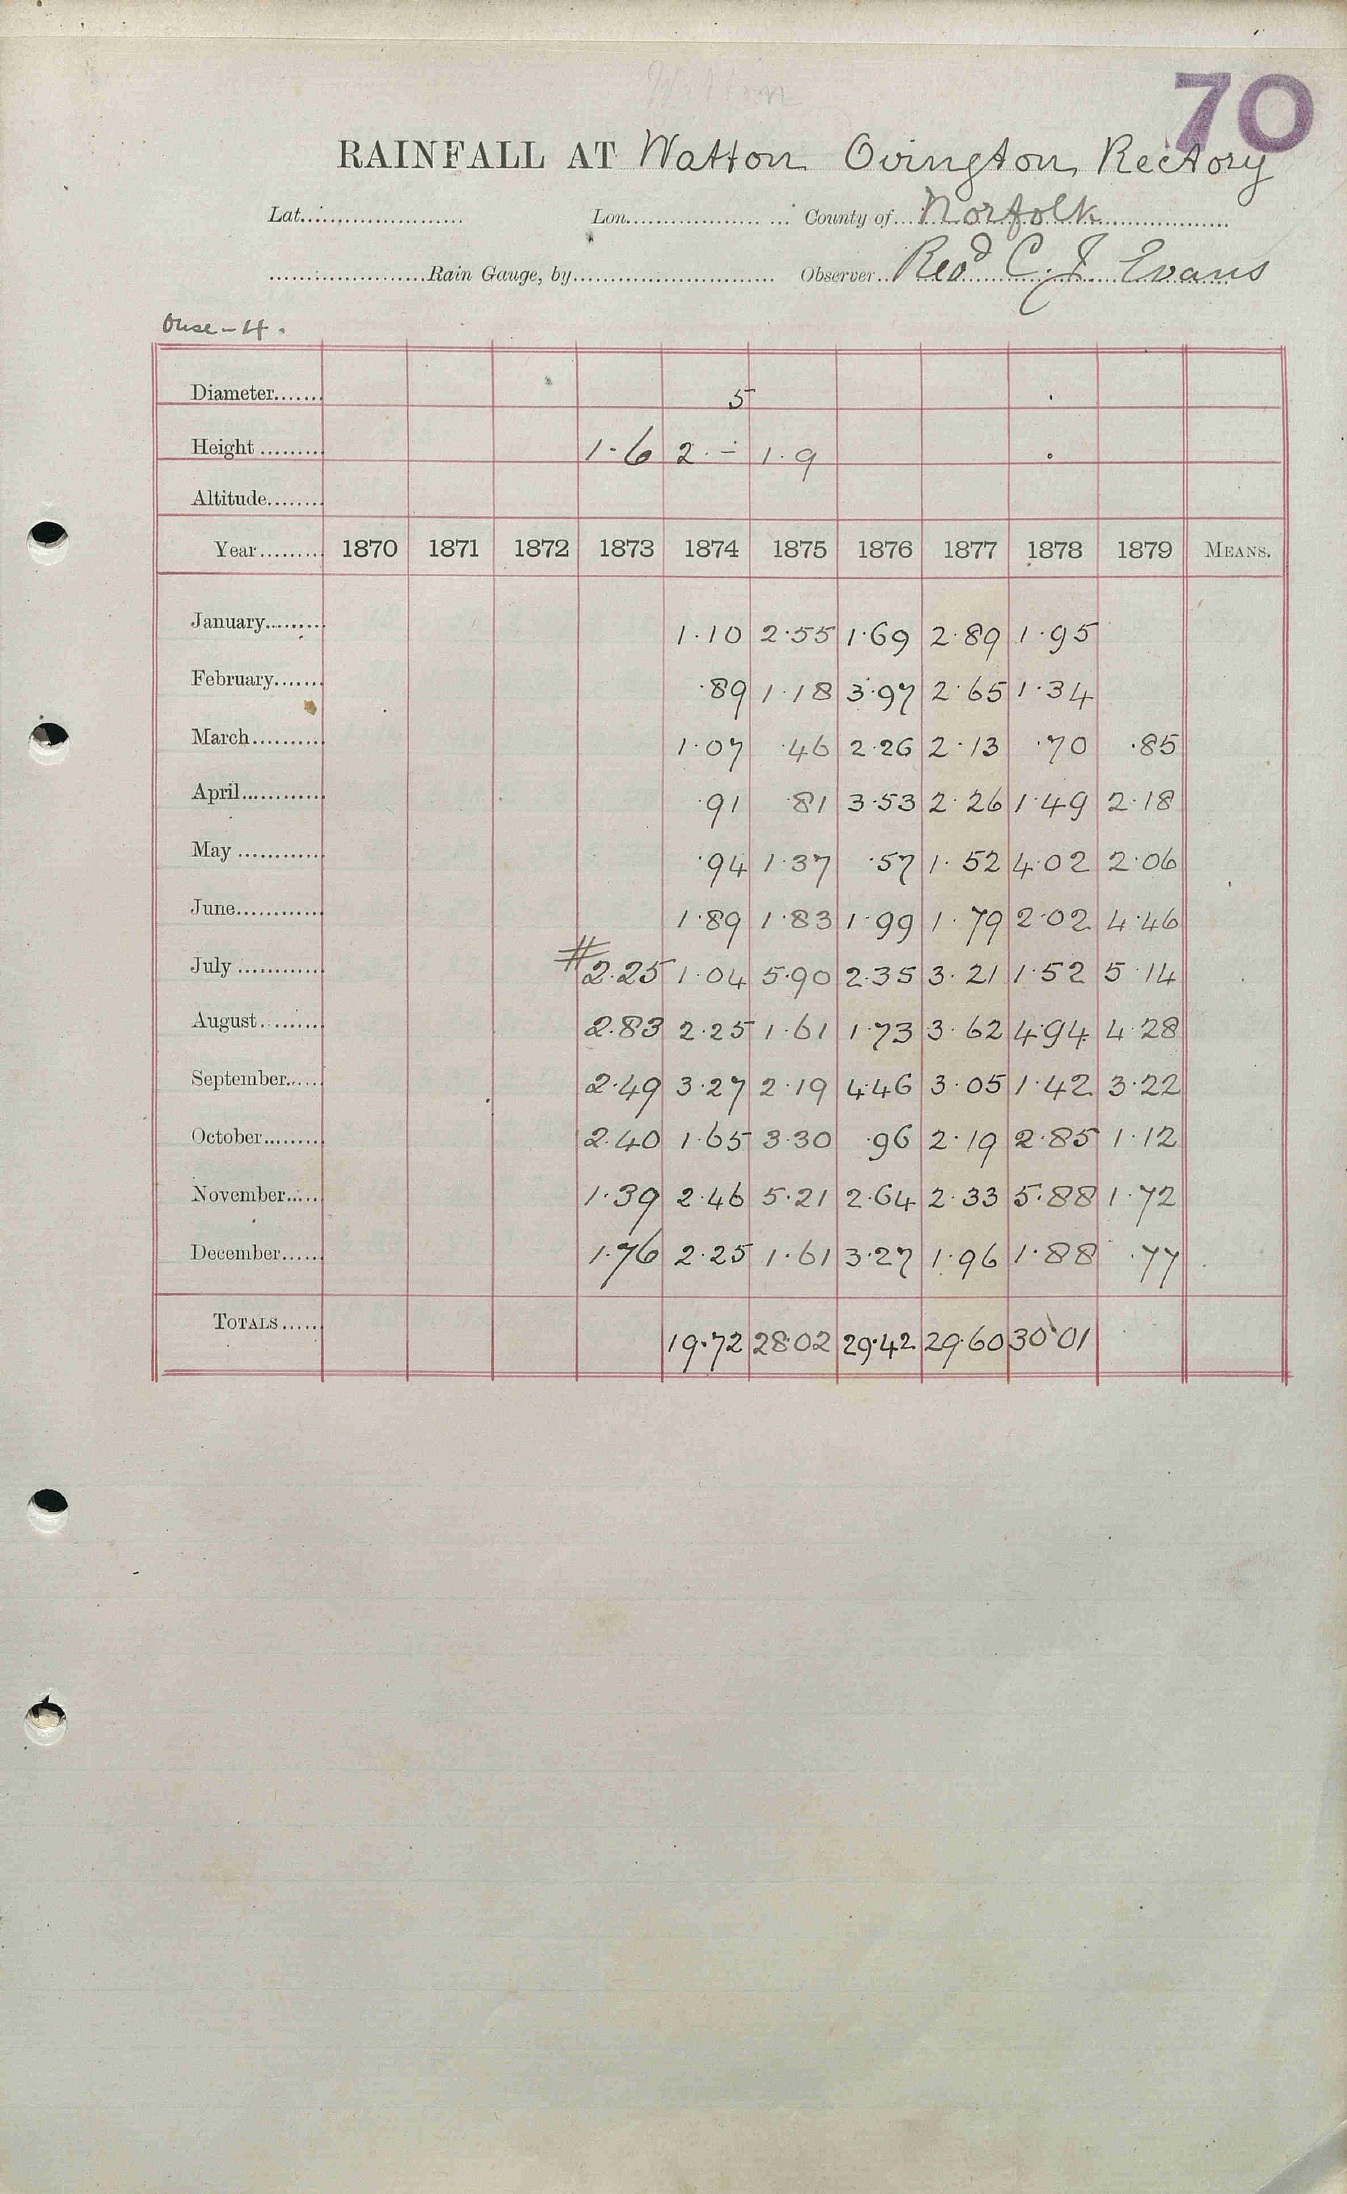 70
RAINFALL AT Watton Ovington Rectory
Lat. Lon. County of Norfolk
Rain Gauge, by Observer Revd C. J. Evans
Ouse - 4.
Diameter 5
Height 1.6 2. - 1.9
Altitude
Year 1870 1871 1872 1873 1874 1875 1876 1877 1878 1879 MEANS.
January 1.10 2.55 1.69 2.89 1.95
February .89 1.18 3.97 2.65 1.34
March 1.07 .46 2.26 2.13 .70 .85
April .91 .81 3.53 2.26 1.49 2.18
May .94 1.37 .57 1.52 4.02 2.06
June 1.89 1.83 1.99 1.79 2.02 4.46
July # 2.25 1.04 5.90 2.35 3.21 1.52 5.14
August 2.83 2.25 1.61 1.73 3.62 4.94 4.28
September 2.49 3.27 2.19 4.46 3.05 1.42 3.22
October 2.40 1.65 3.30 .96 2.19 2.85 1.12
November 1.39 2.46 5.21 2.64 2.33 5.88 1.72
December 1.76 2.25 1.61 3.27 1.96 1.88 .77
TOTALS 19.72 28.02 29.42 29.60 30.01